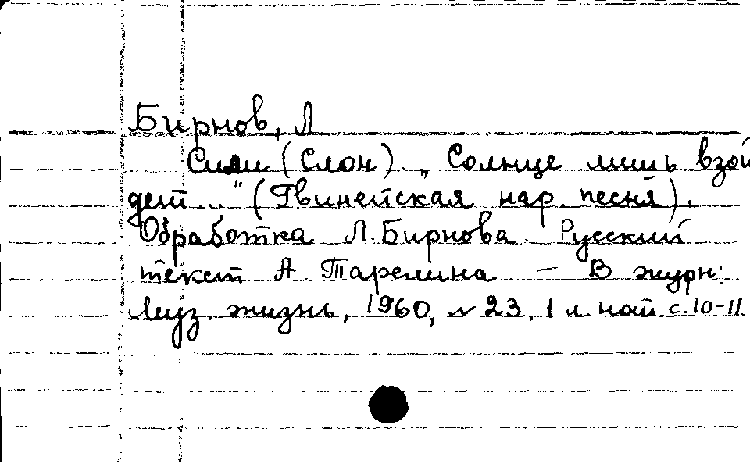 Бирнов, Л
Сили (Слон). „Солнце лишь взой
дет..." (Гвинейская нар. песня).
Обработка Л. Бирнова Русский
текст А. Тарелина – В журн.
Муз. жизнь, 1960, № 23, 1 л. нот с. 10-11